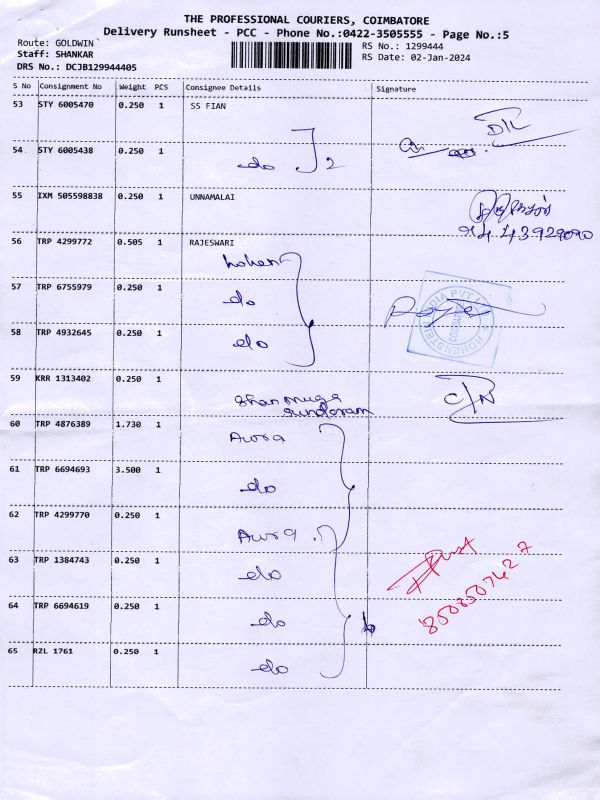 THE PROFESSIONAL COURIERS, COIMBATORE
Delivery Runsheet - PCC - Phone No.:0422-3505555 - Page No.:5
Route: GOLDWIN
Staff: SHANKAR
DRS No.: DCJB129944405
RS No.: 1299444
RS Date: 02-Jan-2024
S No Consignment No Weight PCS Consignee Details Signature
53 STY 6005470 0.250 1 SS FIAN
54 STY 6005438 0.250 1 do 2
55 IXM 505598838 0.250 1 UNNAMALAI
9443929090
56 TRP 4299772 0.505 1 RAJESWARI
hohen
57 TRP 6755979 0.250 1 do
58 TRP 4932645 0.250 1 do
59 KRR 1313402 0.250 1 Shanmuga
sundaram
60 TRP 4876389 1.730 1 Aura
61 TRP 6694693 3.500 1 do
62 TRP 4299770 0.250 1 Aura
63 TRP 1384743 0.250 1 do
8508507427
64 TRP 6694619 0.250 1 do
65 RZL 1761 0.250 1 do